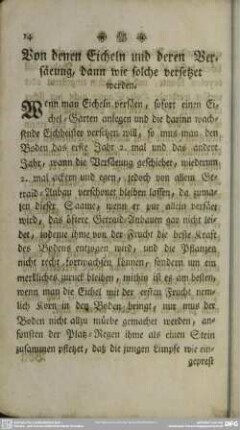 14
Von denen Eicheln und deren Ver-
säeung, dann wie solche versetzet
werden.
Wenn man Eicheln versäen, sofort einen Ei-
chel-Garten anlegen und die darinn wach-
sende Eichheister versetzen will, so mus man den
Boden das erste Jahr 2. mal und das andere
Jahr, wann die Versäeung geschiehet, wiederum
2. mal ackern und egen, jedoch von allem Ge-
traid-Anbau verschonet bleiben lassen, da zuma-
len dieser Saame, wenn er pur allein versäet
wird, das öftere Getraid-Anbauen gar nicht lei-
det, indeme ihme von der Frucht die beste Kraft
des Bodens entzogen wird, und die Pflanzen
nicht recht fortwachsen können, sondern um ein
merkliches zuruck bleiben, mithin ist es am besten,
wenn man die Eichel mit der ersten Frucht nem-
lich Korn in den Boden bringt, nur mus der
Boden nicht allzu mürbe gemacht werden, an-
sonsten der Platz-Regen ihme als einen Stein
zusammen pfletzet, daß die jungen Limpfe wie ein-
geprest